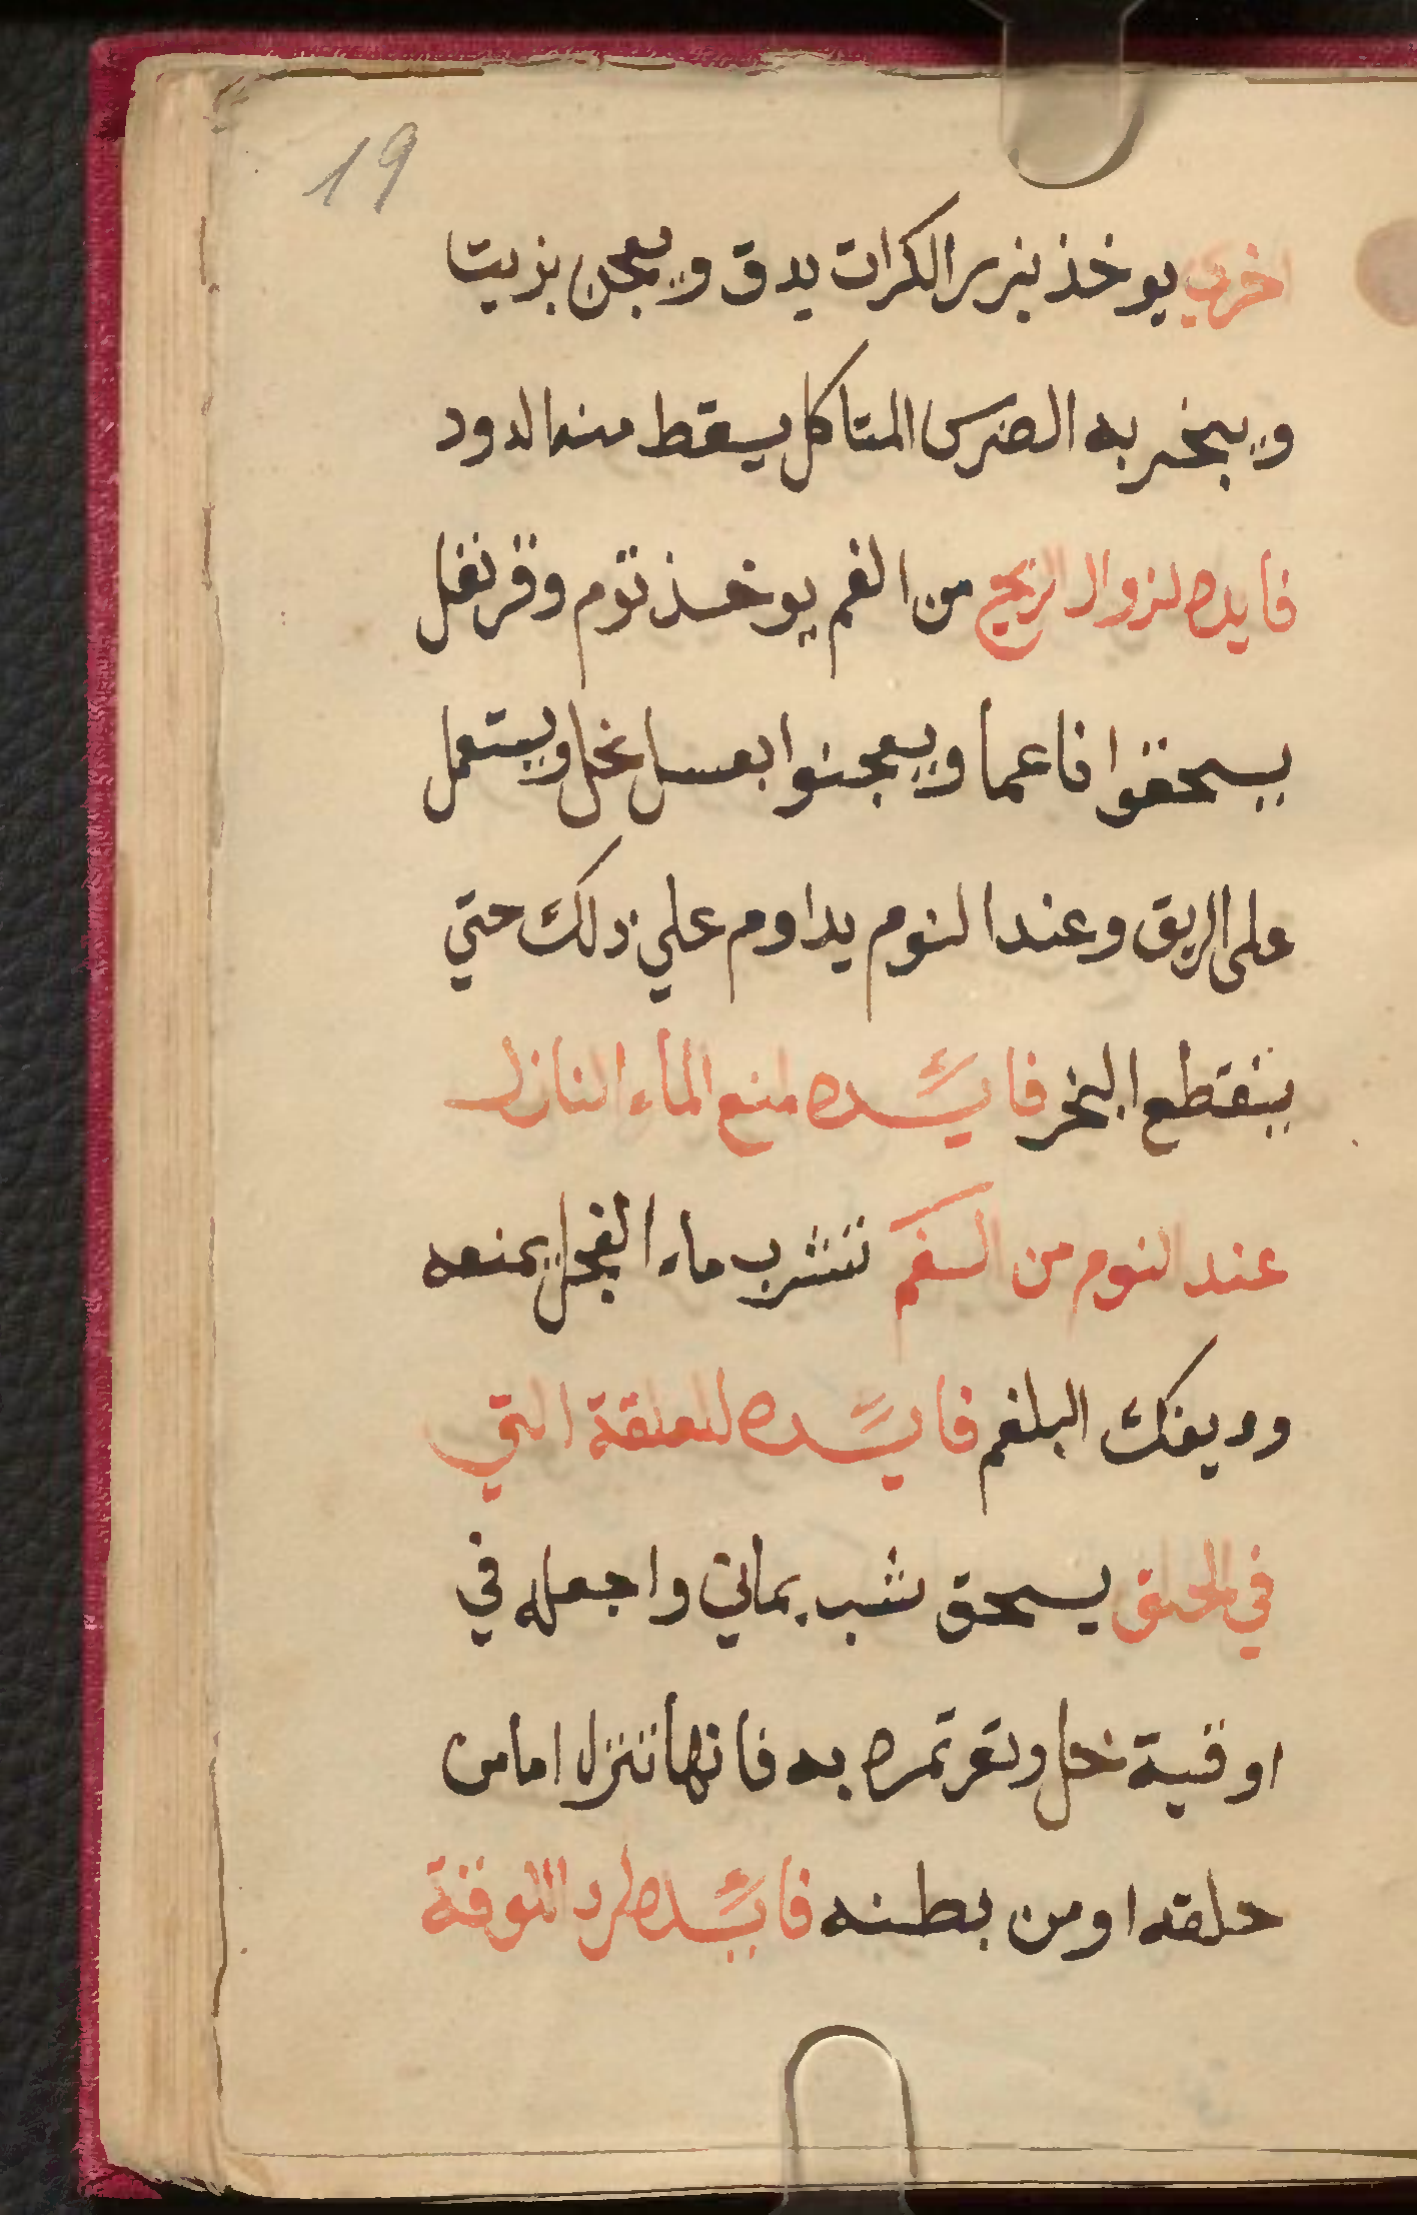 19
اخري يوخذ بزر الكرات يدق ويعجن بزيت
ويبخر به الضرس المتاكل يسقط منه الدود
فايده لزوال الريح من الفم يوخذ توم وقرنفل
يسحقوا ناعما ويعجنوا بعسل نحل ويستعمل
على الريق وعند النوم يداوم علي ذلك حتي
ينقطع البخر فايده لمنع الماء النازل
عند النوم من الفم تشرب ماء الفجل يمنعه
ويفك البلغم فايده للعلقة التي
في الحلق يسحق شب يماني واجعله في
اوقية خل وتغرغره به فانها تنزل اما من
حلقه او من بطنه فايده لطرد